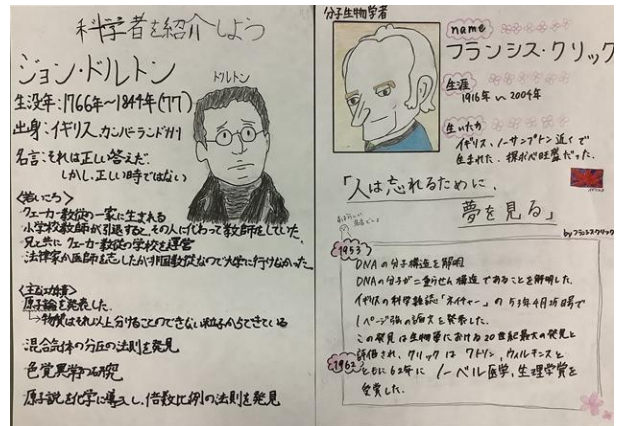 科学者を紹介しよう
ジョン・ドルトン
ドルトン
生没年:1766年~1844年(77)
出身:イギリス、カンバーランド州
名言:それは正しい答えだ.
しかし、正しい時ではない
<若いころ>
クェーカー教徒の一家に生まれる
小学校教師が引退すると、その人にかわって教師をしていた.
兄と共にクェーカー教徒の学校を運営
法律家か医師を志したが非国教徒なので大学に行けなかった.
<主な功績>
原子論を発表した.
→物質はそれ以上分けることのできない粒子からできている
混合気体の分圧の法則を発見
色覚異常の研究
原子説を化学に導入し、倍数比例の法則を発見
分子生物学者
name
フランシス・クリック
生涯
1916年~2004年
生いたち
イギリス、ノーサンプトン近くで
生まれた. 探求心旺盛だった.
「人は忘れるために、
夢を見る」
byフランシスクリック
1953
DNAの分子構造を解明
DNAの分子が二重らせん構造であることを解明した.
イギリスの科学雑誌「ネイチャー」の53年4月25日号で
1ページ強の論文を発表した.
この発見は生物学における20世紀最大の発見と
評価され、クリックはワトソン、ウィルキンスと
1962
ともに62年にノーベル医学、生理学賞を
受賞した.